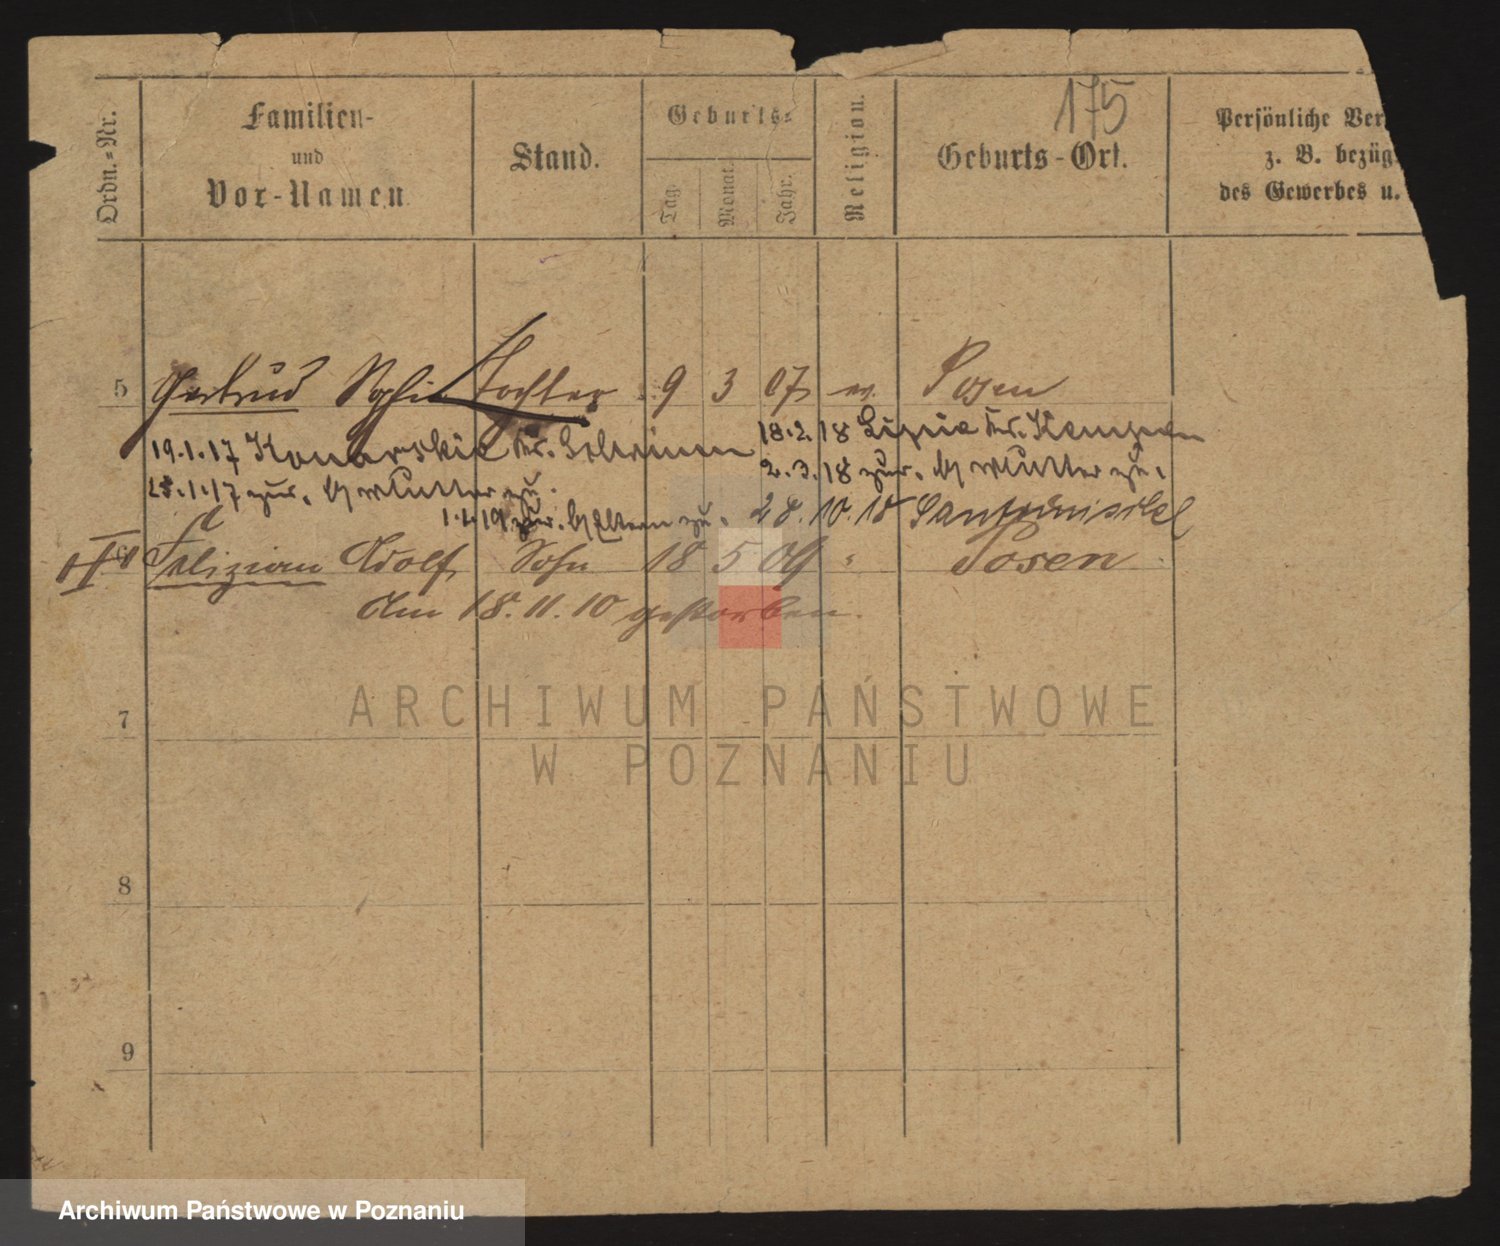 175
Ordn.=Nr.
Familien-
und
Vor-Namen.
Stand.
Geburts=
Tag.
Monat.
Jahr.
Religion.
Geburts-Ort.
Persönliche Ver
z. B. bezüg
des Gewerbes u.
5 Gertrud Sophie Tochter 9 3 07 ev. Posen
19.1.17 Kr.
18.2.18 Kr. Kempen
25.1.17 zur. b/ Mutter zu.
2.3.18 zur. b/ Mutter zu.
1.4.19 zur. b/ Eltern zu. 28.10.18
Felizian Adolf Sohn 18 5 09 " Posen
Am 18.11.10 gestorben.
7
8
9
ARCHIWUM PAŃSTWOWE
W POZNANIU
Archiwum Państwowe w Poznaniu